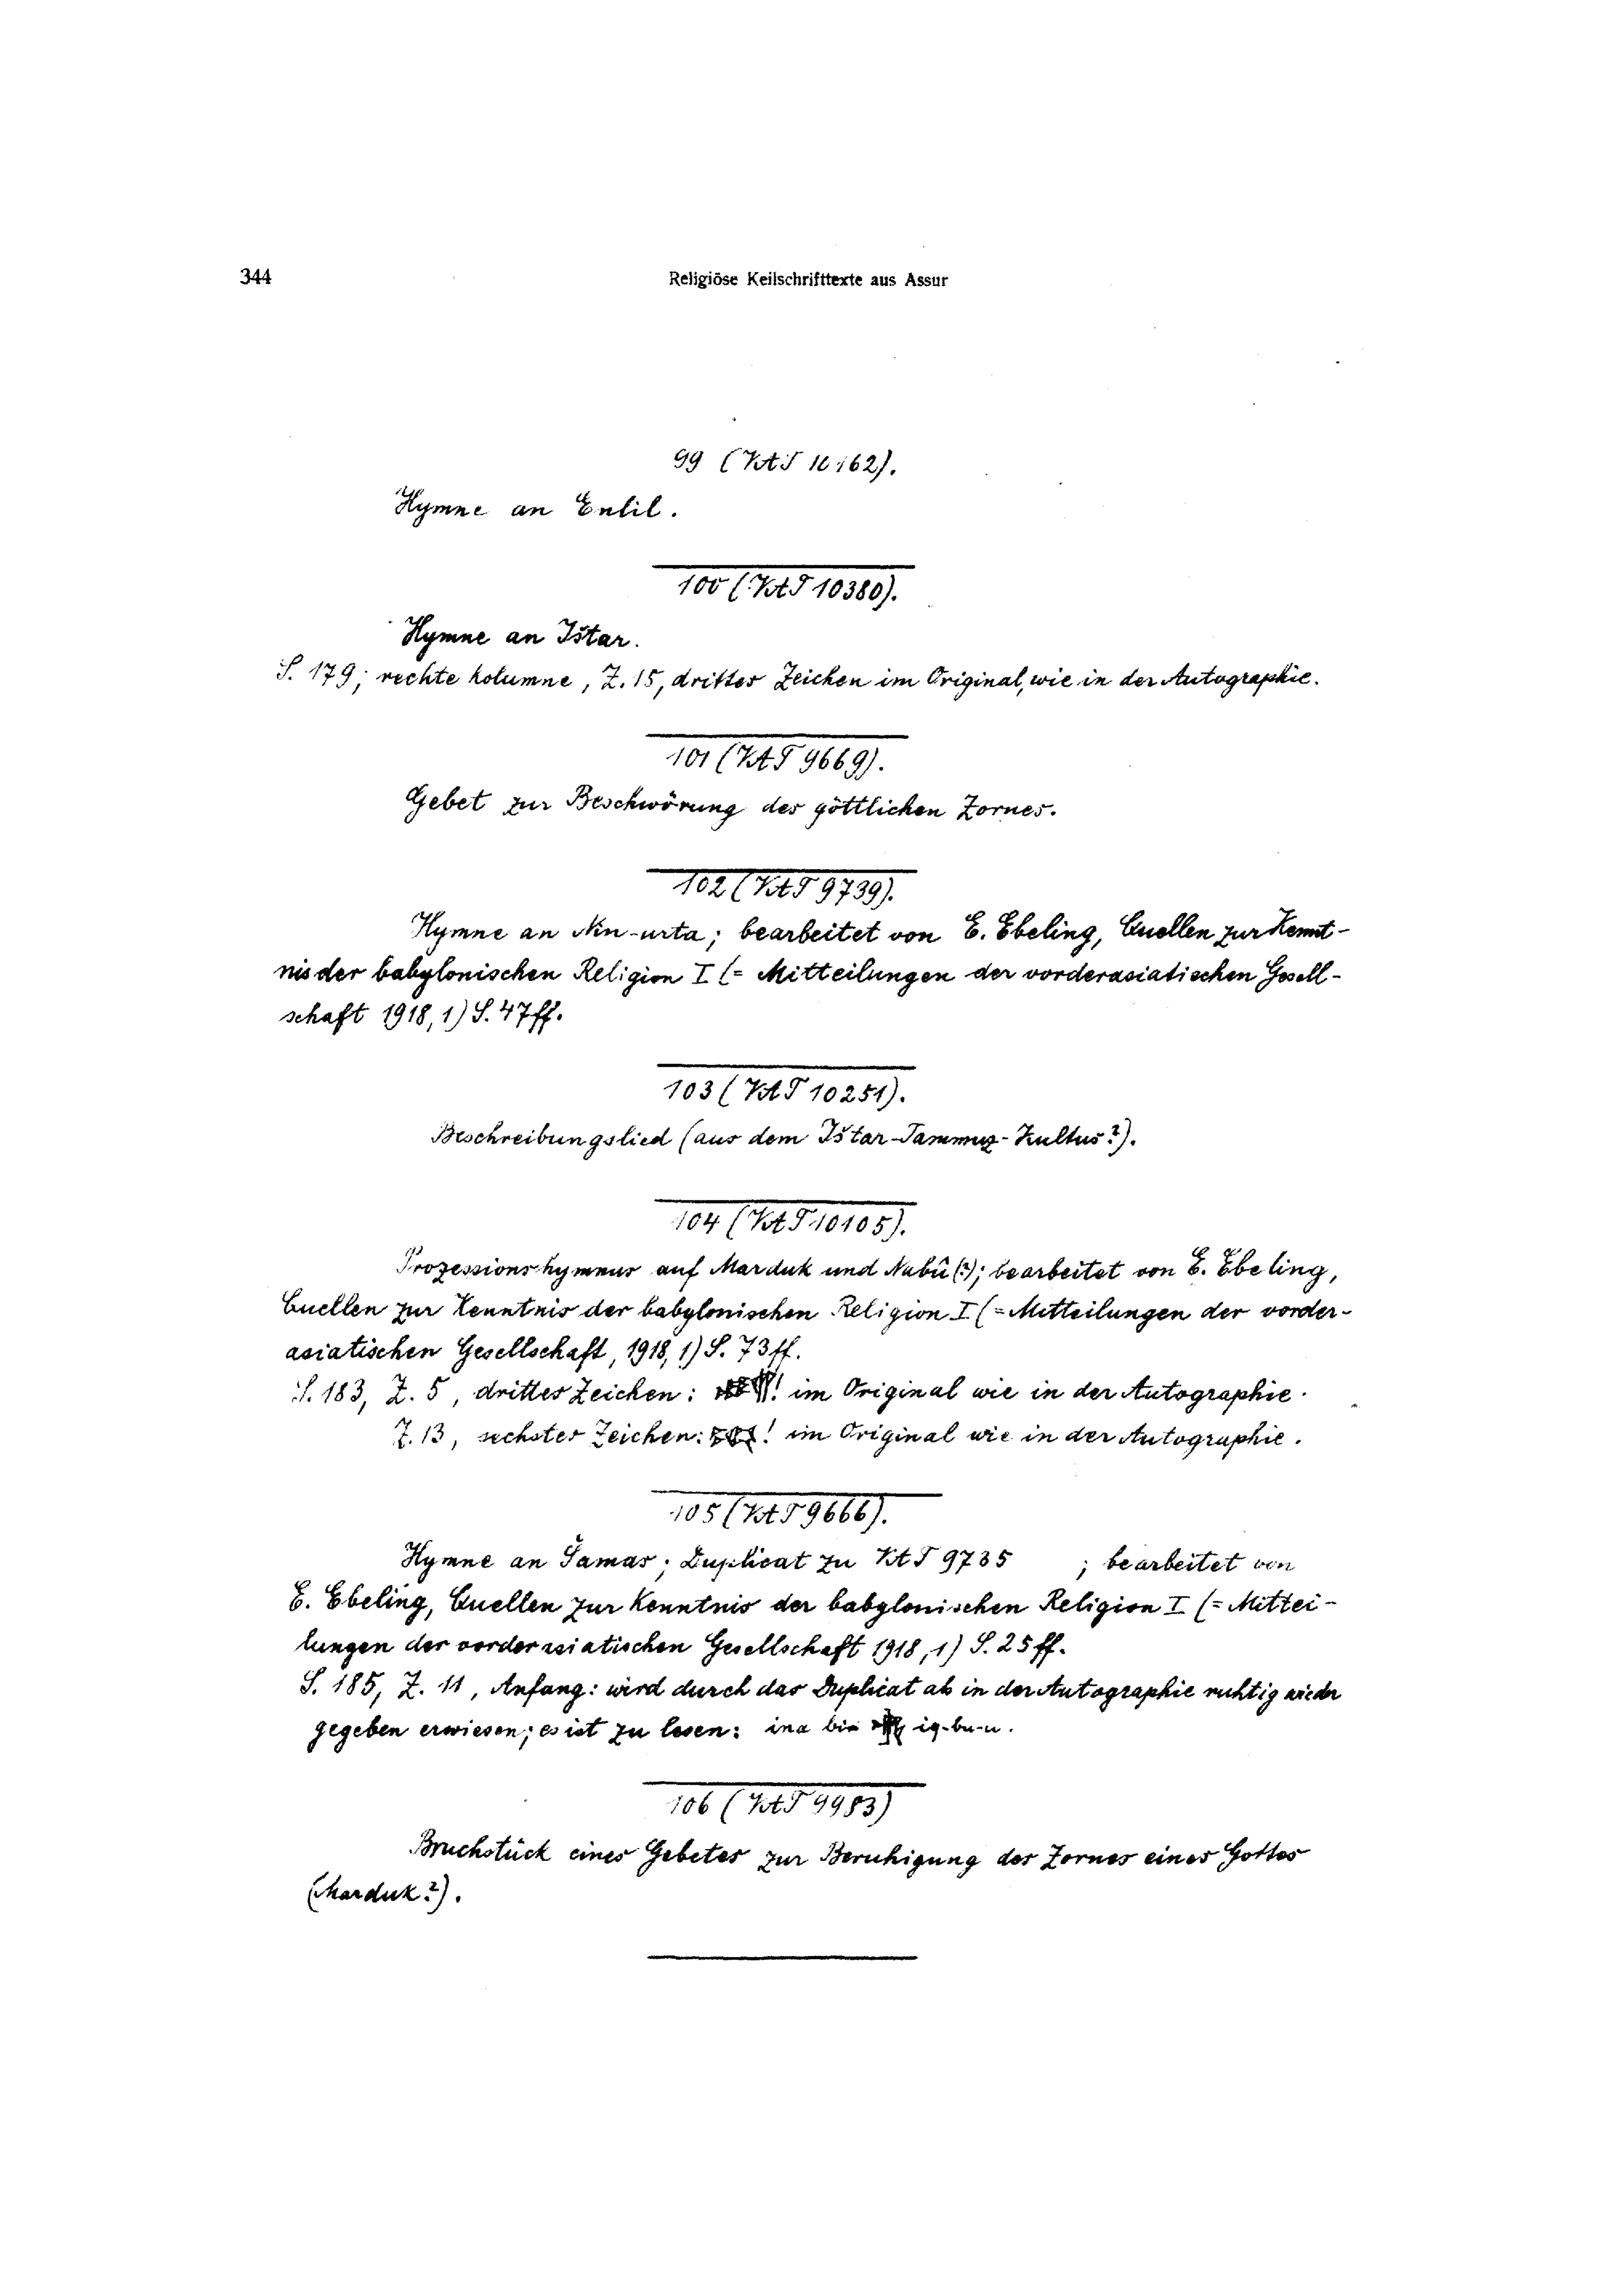 344
Religiöse Keilschrifttexte aus Assur
99 (VAT 10162).
Hymne an Enlil.
100 (VAT 10380).
Hymne an Ištar.
S. 179; rechte Kolumne, Z. 15, drittes Zeichen im Original, wie in der Autographie.
101 (VAT 9669).
Gebet zur Beschwörung des göttlichen Zornes.
102 (VAT 9739).
Hymne an Nin-urta; bearbeitet von E. Ebeling, Quellen zur Kennt-
nis der babylonischen Religion I (= Mitteilungen der vorderasiatischen Gesell-
schaft 1918, 1) S. 47ff.
103 (VAT 10251).
Beschreibungslied (aus dem Ištar-Tammuz-Kultus?).
104 (VAT 10105).
Prozessionshymnus auf Marduk und Nabû(?); bearbeitet von E. Ebeling,
Quellen zur Kenntnis der babylonischen Religion I (= Mitteilungen der vorder-
asiatischen Gesellschaft, 1918, 1) S. 73ff.
S. 183, Z. 5, drittes Zeichen: ! im Original wie in der Autographie.
Z. 13, sechstes Zeichen: ! im Original wie in der Autographie.
105 (VAT 9666).
Hymne an Šamaš; Duplicat zu VAT 9735 ; bearbeitet von
E. Ebeling, Quellen zur Kenntnis der babylonischen Religion I (= Mittei-
lungen der vorderasiatischen Gesellschaft 1918, 1) S. 25ff.
S. 185, Z. 11, Anfang: wird durch das Duplicat als in der Autographie richtig wieder
gegeben erwiesen; es ist zu lesen: ina ig-bu-u.
106 (VAT 9983)
Bruchstück eines Gebetes zur Beruhigung des Zornes eines Gottes
(Marduk?).